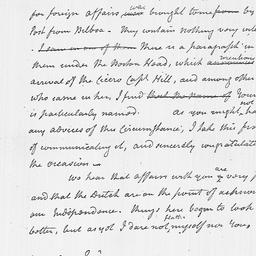 for foreign affairs were brought to me from by
Post from Bilboa. They contain nothing very inte
. I saw in one of them There is a paragraph in
them under the Boston Head, which mentions
arrival of the Cicero Capt. Hill, and among other
who came in her, I find that the name of Your
is particularly named. As you might not ha
any advices of this Circumstance, I take this fir
of communicating it, and sincerely congratulate
the occasion.
We hear that affairs with you are very p
and that the Dutch are on the point of acknow
our Independence. Things here began to look
better, but as yet I dare not flatter myself nor Your